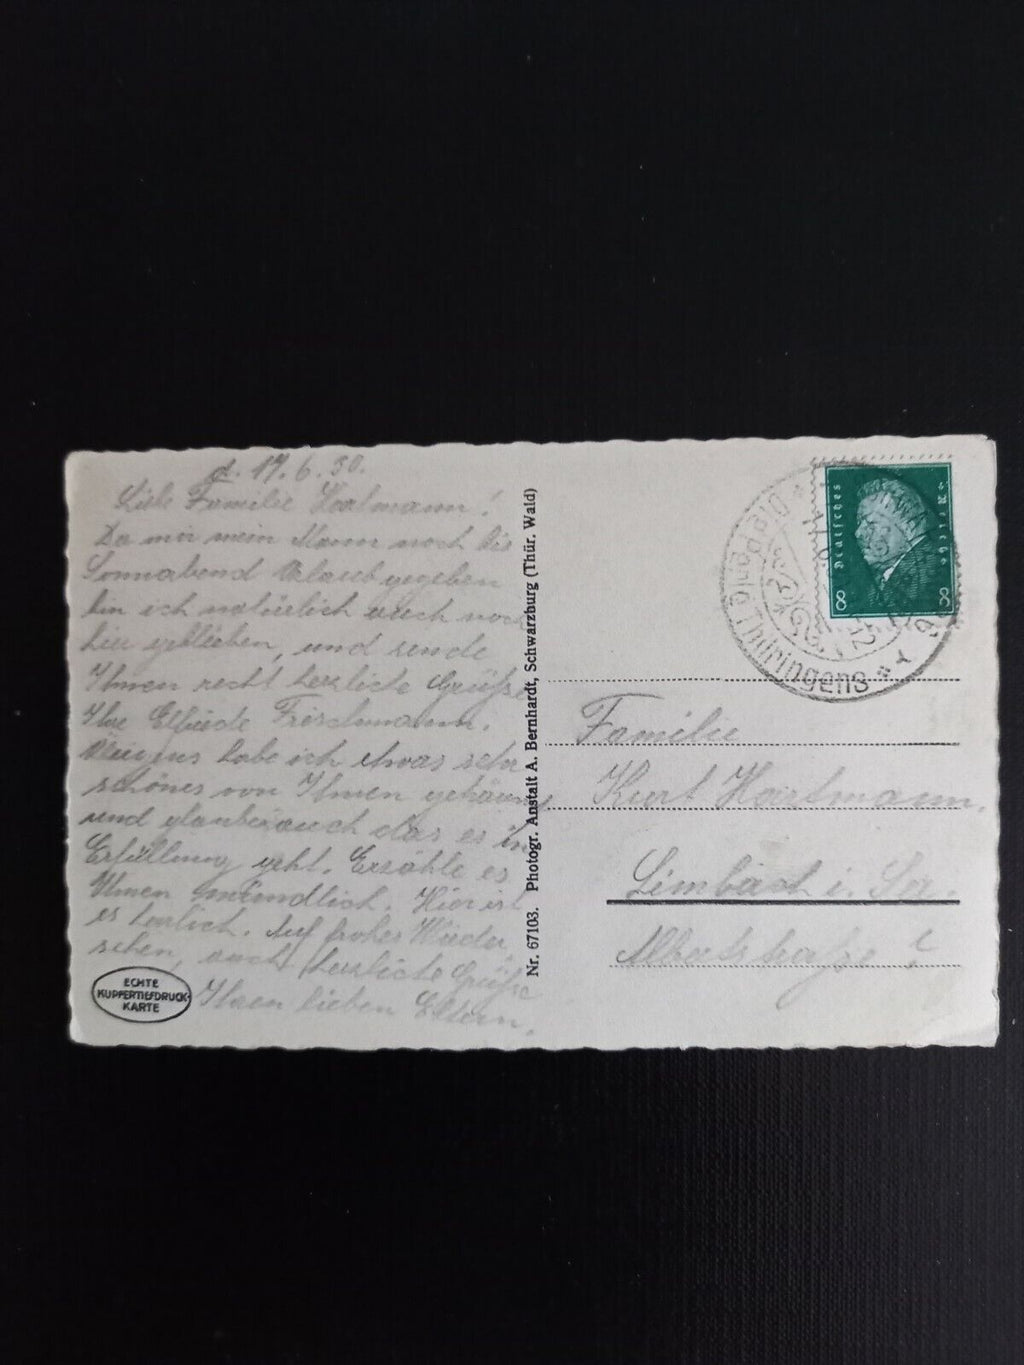 d. 17.6.30.
Liebe Familie Hartmann!
Da mir mein Mann noch bis
Sonnabend Urlaub gegeben
bin ich natürlich auch noch
hier geblieben, und sende
Ihnen recht herzliche Grüße
Ihre Elfriede Frischmann.
Übrigens habe ich etwas sehr
schönes von Ihnen geträumt
und glaube auch das es in
Erfüllung geht. Erzähle es
Ihnen mündlich. Hier ist
es herlich. Auf frohes Wieder
sehen, auch herzliche Grüße
Ihren lieben Eltern.
ECHTE
KUPFERTIEFDRUCK-
KARTE
Nr. 67103. Photogr. Anstalt A. Bernhardt, Schwarzburg (Thür. Wald)
Deutsches Reich
8 8
Die Perle Thüringens
Familie
Kurt Hartmann.
Limbach i. Sa.
Albertstraße